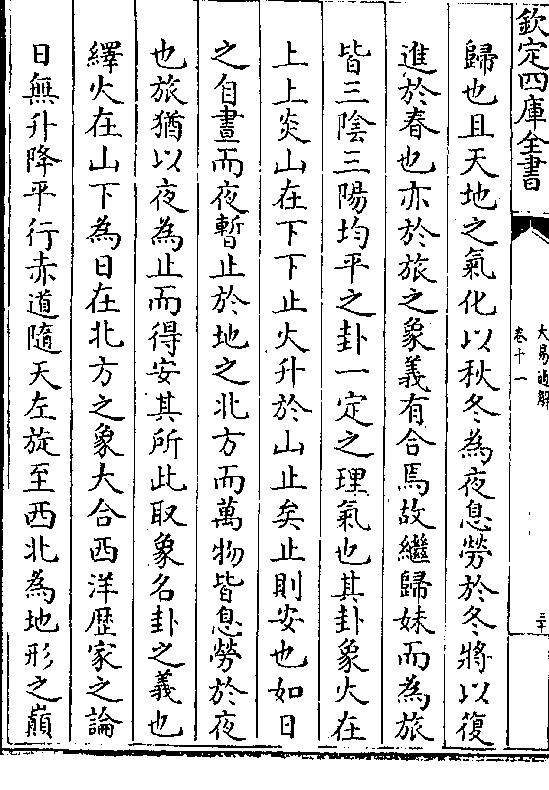 欽定四庫全書
大易通解
卷十一
三十
歸也且天地之氣化以秋冬為夜息勞於冬將以復
進於春也亦於旅之象義有合焉故繼歸妹而為旅
皆三陰三陽均平之卦一定之理氣也其卦象火在
上上炎山在下下止火升於山止矣止則安也如日
之自晝而夜暫止於地之北方而萬物皆息勞於夜
也旅猶以夜為止而得安其所此取象名卦之義也
繹火在山下為日在北方之象大合西洋歴家之論
日無升降平行赤道隨天左旋至西北為地形之巔